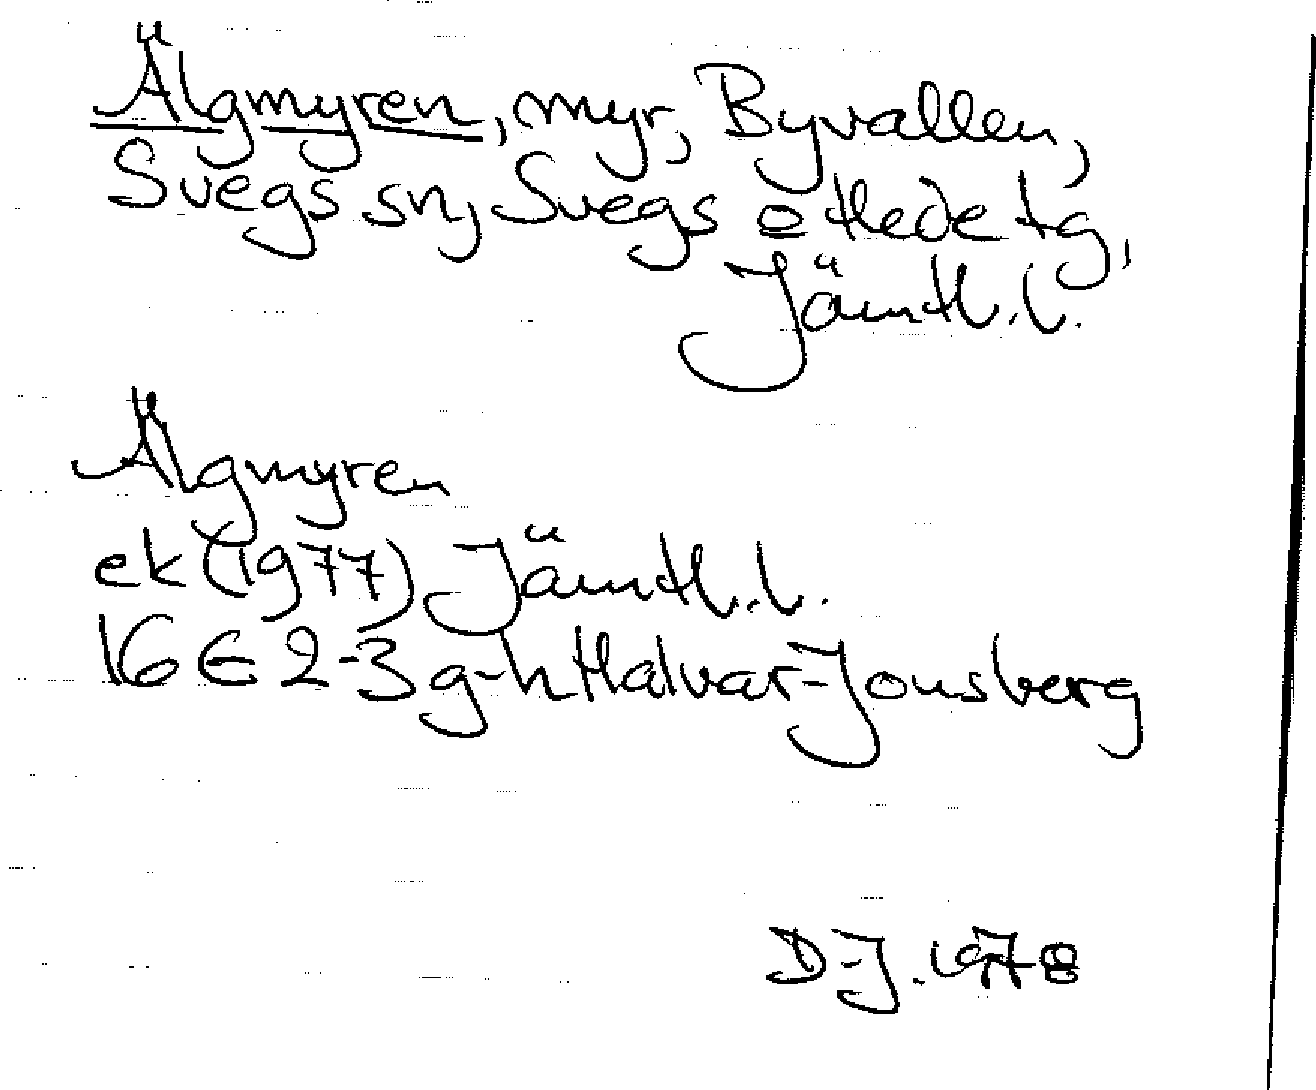 Älgmyren, myr, Byvallen,
Svegs sn, Svegs o Hede tg,
Jämtl.l.
Älgmyren
ek (1977) Jämtl.l.
16 E 2-3 g-h Halvar-Jonsberg
D-J. 1978